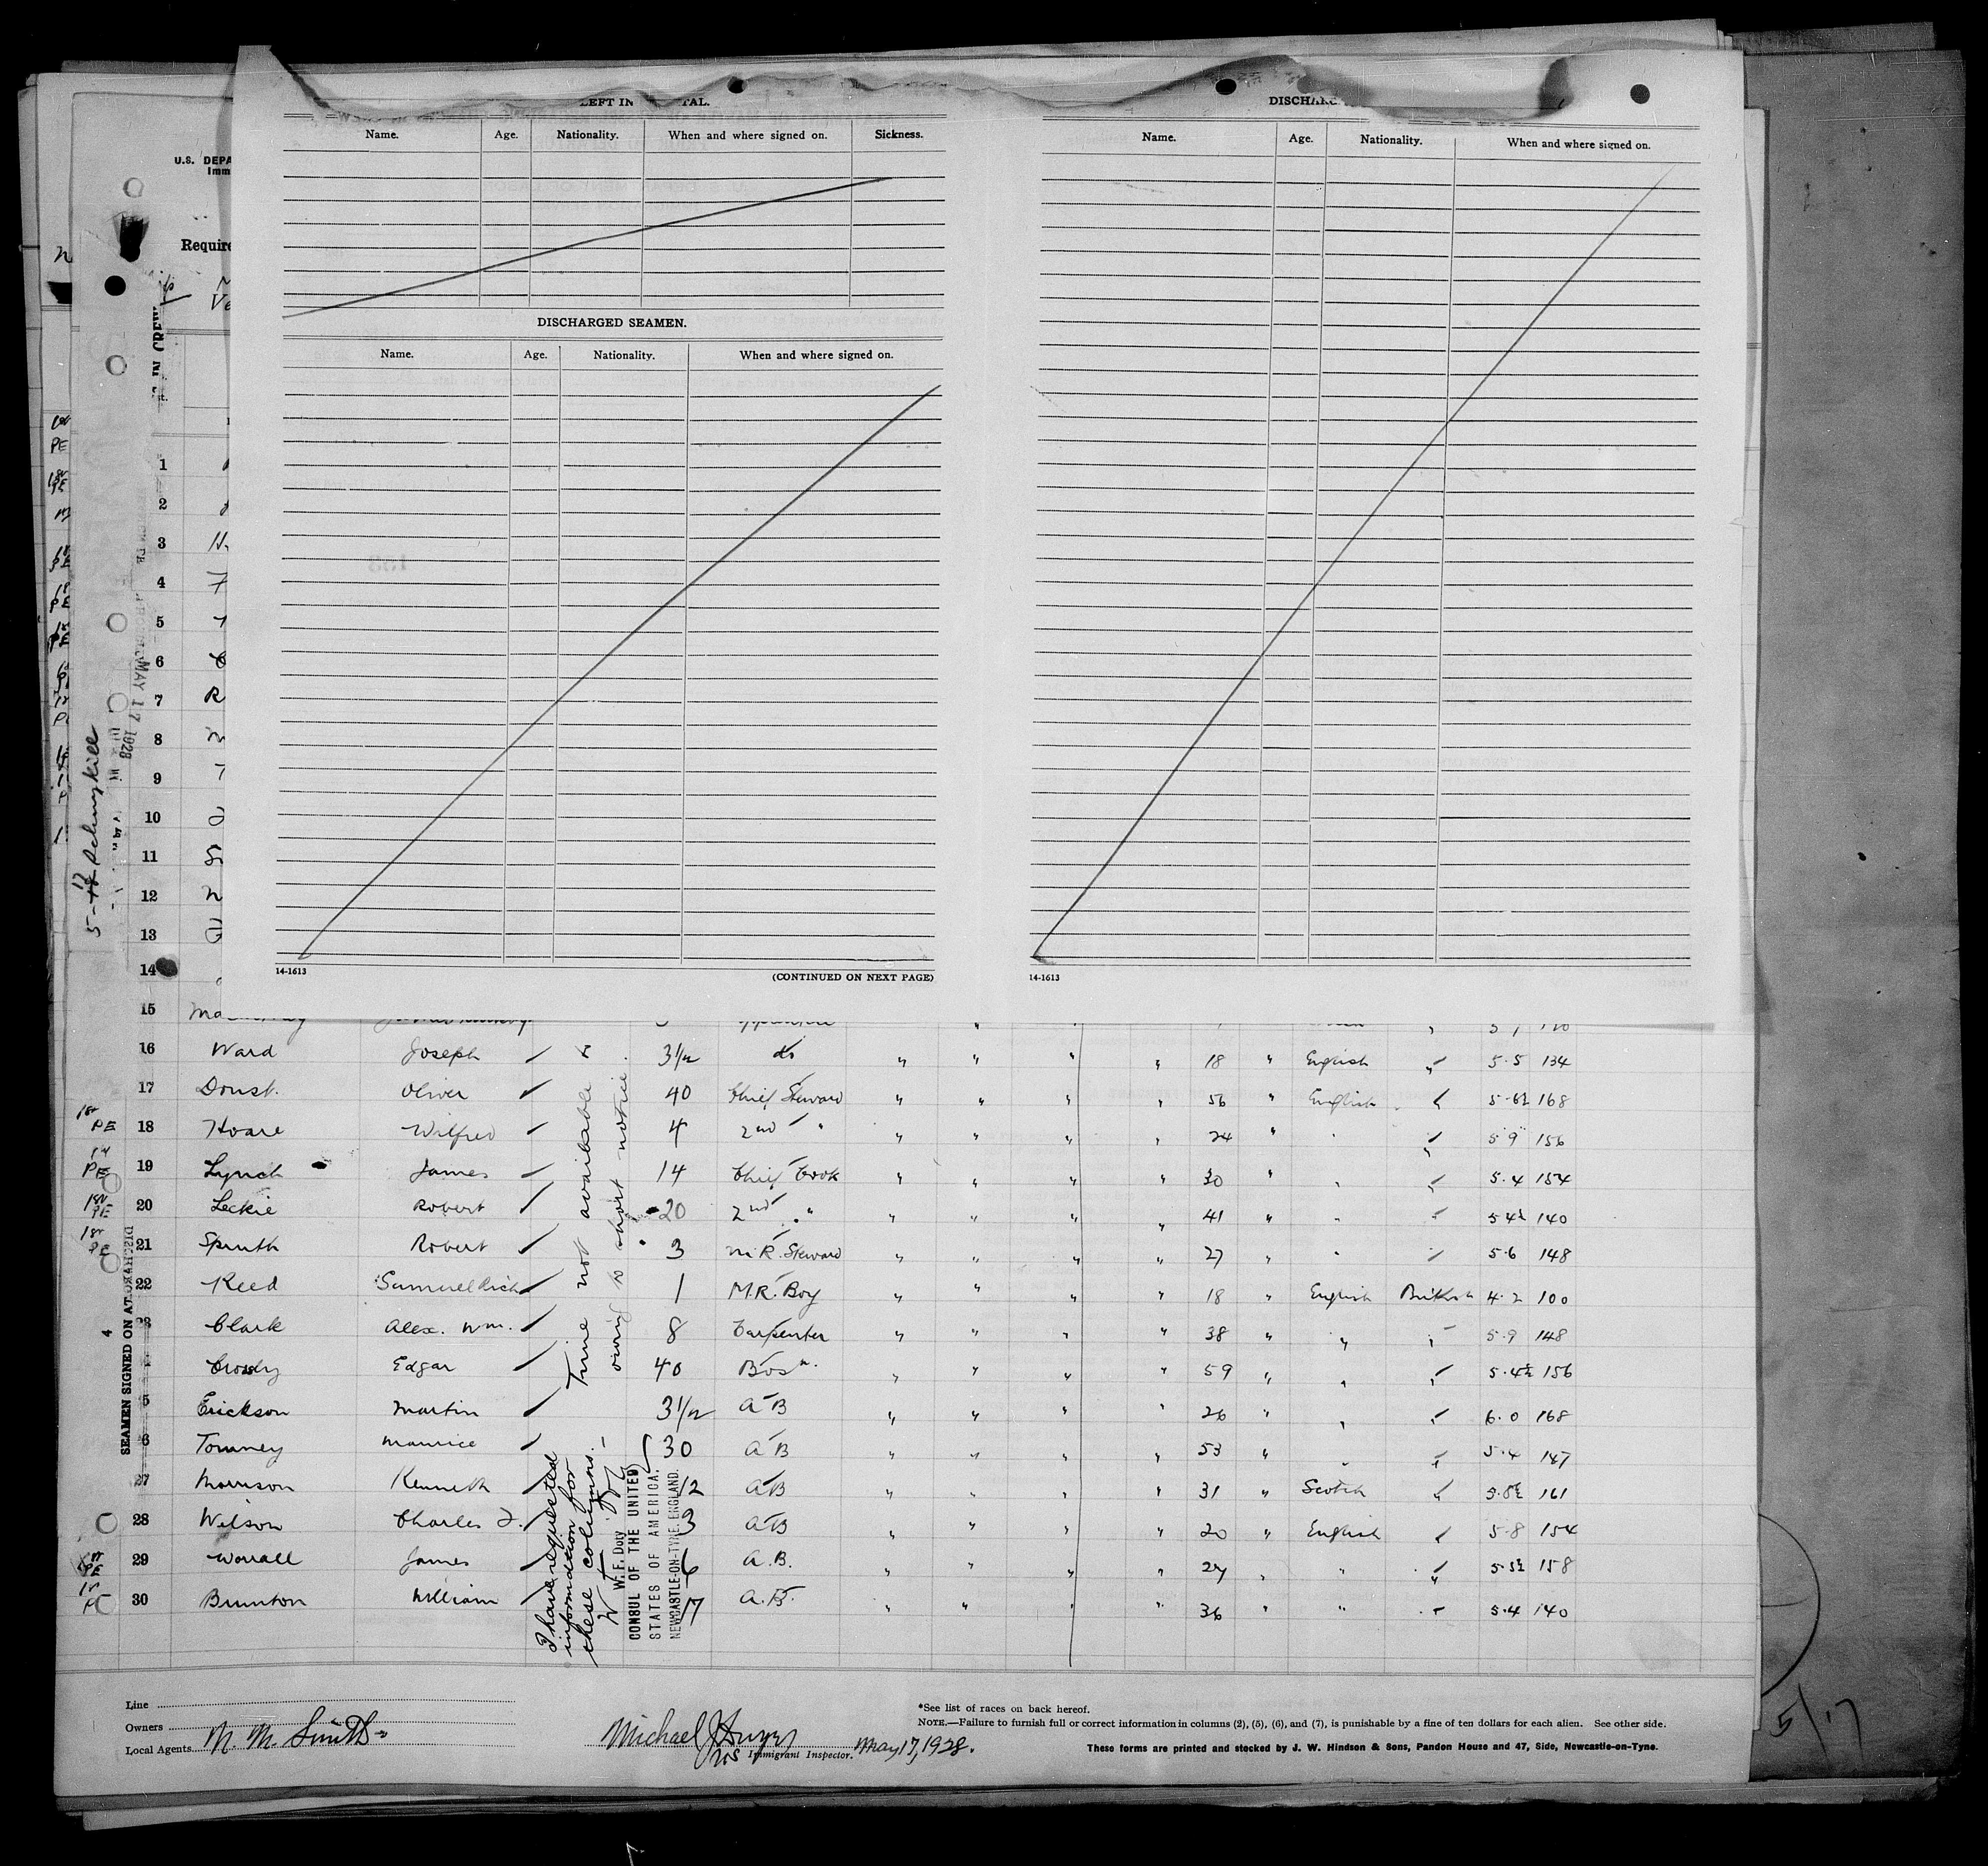 LEFT IN TAL.
Name. Age. Nationality. When and where signed on. Sickness.
DISCHARGED SEAMEN.
Name. Age. Nationality. When and where signed on.
14-1613 (CONTINUED ON NEXT PAGE)
DISCHARG
Name. Age. Nationality. When and where signed on.
14-1613
U.S. DEPA
Imm
Require
IN CREW
MAY 17 1928
5-17 Schuylkill
1
2
3
4
5
6
7
8
9
10
11
12
13
14
15
16 Ward Joseph 3½ do " " " " 18 " English " 5.5 134
17 Doust. Oliver 40 Chief Steward " " " " 56 " English " 5-6½ 168
18 Hoare Wilfred 4 2nd " " " " " 24 " " " 5 9 156
19 Lynch James 14 Chief Cook " " " " 30 " " " 5.4 154
20 Leckie Robert 20 2nd " " " " " 41 " " " 5 4½ 140
21 Spruth Robert 3 M.R. Steward " " " " 27 " " " 5.6 148
22 Reed Samuel Rich 1 M.R. Boy " " " " 18 " English British 4.2 100
23 Clark Alex. Wm. 8 Carpenter " " " " 38 " " " 5.9 148
Crosby Edgar 40 Bosn. " " " " 59 " " " 5.4½ 156
5 Erickson Martin 3½ AB " " " " 26 " " " 6.0 168
6 Tomney Maurice 30 AB " " " " 53 " " " 5.4 147
27 Morrison Kenneth 12 AB " " " " 31 " Scotch " 5.8½ 161
28 Wilson Charles J. 3 AB " " " " 20 " English " 5.8 154
29 Worrall James 6 A.B. " " " " 27 " " " 5.5½ 158
30 Brunton William 17 A.B. " " " " 36 " " " 5.4 140
Time not available &
owing to short notice.
I have requested
information for
these columns.
W. F. Doty
CONSUL OF THE UNITED
STATES OF AMERICA,
NEWCASTLE-ON-TYNE, ENGLAND.
4
SEAMEN SIGNED ON AT
Line
Owners
Local Agents M. M. Smith
Michael J Dwyer
Immigrant Inspector. May 17, 1928.
*See list of races on back hereof.
NOTE.—Failure to furnish full or correct information in columns (2), (5), (6), and (7), is punishable by a fine of ten dollars for each alien. See other side.
These forms are printed and stocked by J. W. Hindson & Sons, Pandon House and 47, Side, Newcastle-on-Tyne.
5/17